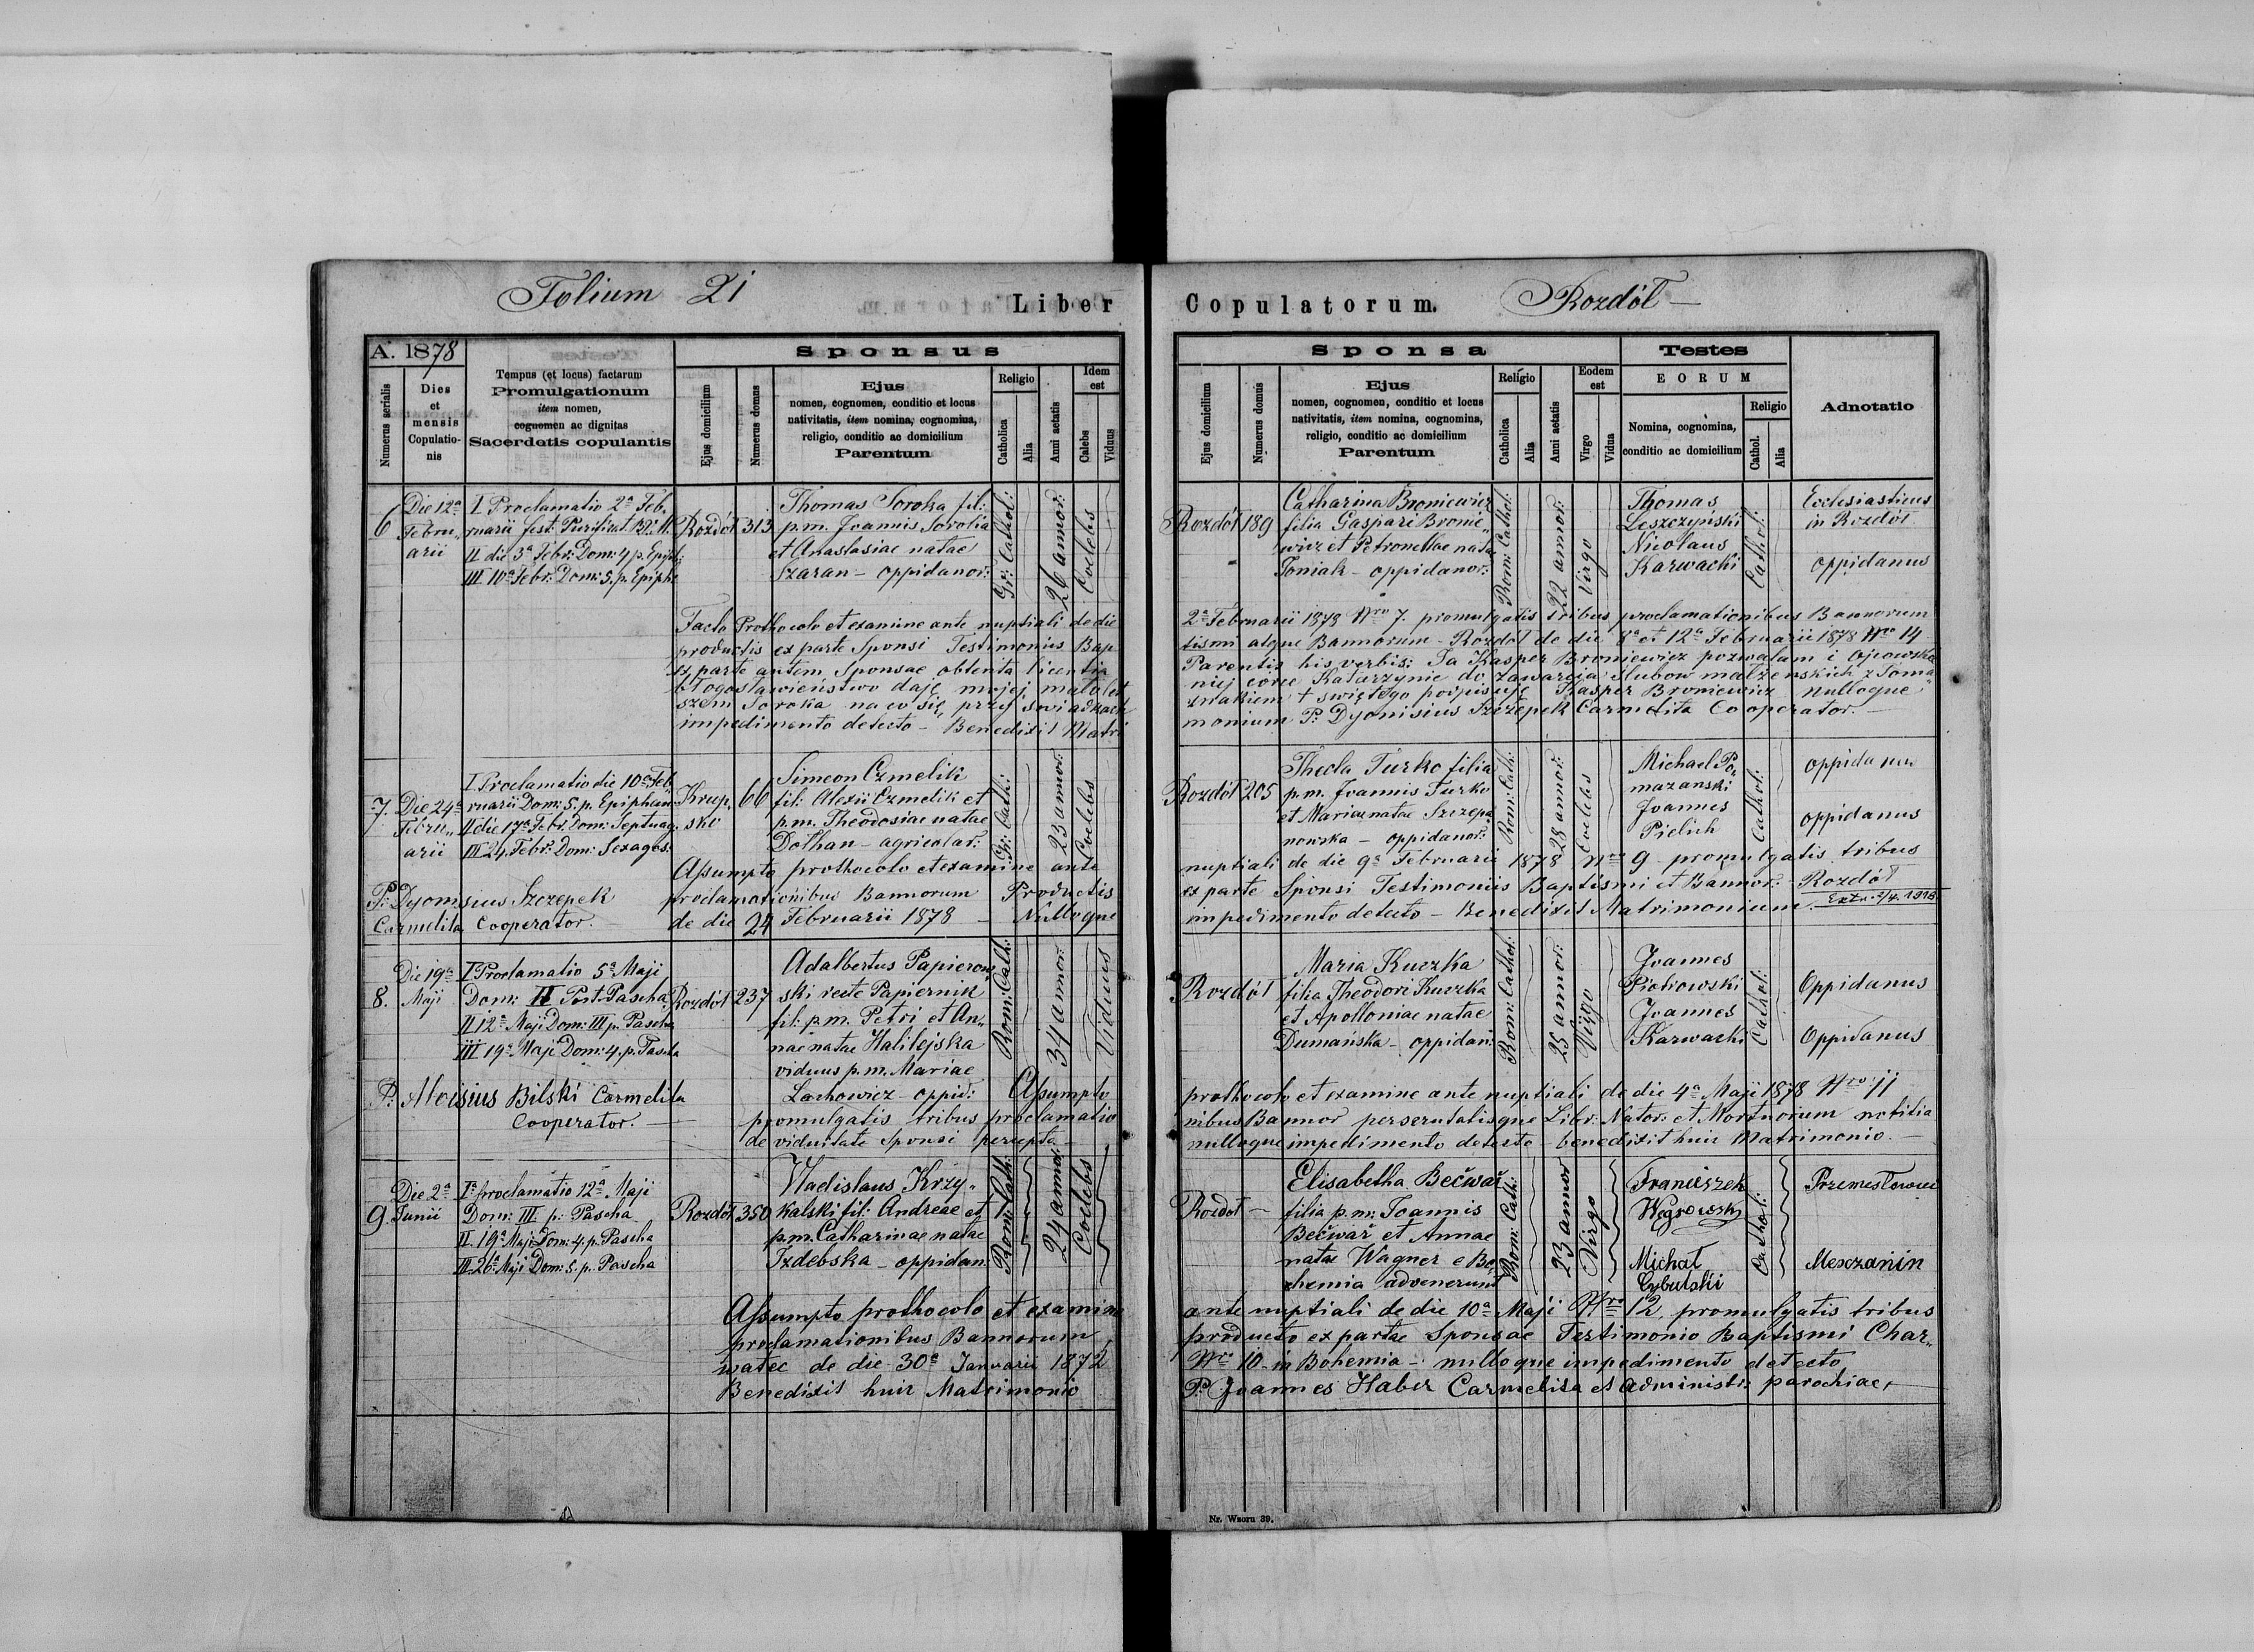 Folium 21
Liber Copulatorum. Rozdół
A. 1878
Numerus serialis
Dies et mensis Copulatio-nis
Tempus (et locus) factarum
Promulgationum
item nomen,
cognomen ac dignitas
Sacerdotis copulantis
Sponsus
Ejus domicilium
Numerus domus
Ejus
nomen, cognomen, conditio et locus
nativitatis, item nomina, cognomina,
religio, conditio ac domicilium
Parentum
Religio
Catholica
Alia
Anni aetatis
Idem est
Calebs
Viduus
Sponsa
Ejus domicilium
Numerus domus
Ejus
nomen, cognomen, conditio et locus
nativitatis, item nomina, cognomina,
religio, conditio ac domicilium
Parentum
Religio
Catholica
Alia
Anni aetatis
Eodem est
Virgo
Vidua
Testes
EORUM
Nomina, cognomina,
conditio ac domicilium
Religio
Cathol.
Alia
Adnotatio
6
Die 12a
Febru„
arii
I Proclamatio 2a Feb.
ruarii fest. Purificat. B.V.M.
II die 3a Febr: Dom: 4 p. Epiph:
III 10a Febr: Dom: 5. p. Epiph:
Rozdół 313
Thomas Soroka fil:
p.m. Joannis Soroka
et Anastasiae natae
Szaran - oppidanor:
Gr: Cathol:
26 annor:
Coelebs
Rozdół 189
Catharina Broniewicz
filia Gaspari Bronie„
wicz et Petronellae nata
Toniak - oppidanor:
Rom: Cathol:
22 annor:
Virgo
Thomas
Leszczyński
Nicolaus
Karwacki
Cathol:
Ecclesiasticus
in Rozdół
oppidanus
Facto Prothocolo et examine ante nuptiali de die 2a Februarii 1878 Nro 7. promulgatis tribus proclamationibus Bannorum
productis ex parte Sponsi Testimonius Bap tismi atque Bannorum - Rozdół de die 8a et 12a Februarii 1878 Nro 14
Ex parte autem Sponsae obtenta licentia Parentis his verbis: Ja Kasper Broniewicz pozwalam i Ojcowskie
błogosławieństwo daję mojej małolet niej córce Katarzynie do zawarcia ślubow małżenskich z Toma„
szem Soroka na co się przy swiadkach znakiem + swiętego podpisuję Kasper Broniewicz nulloque
impedimento detecto - Benedixit Matri monium P. Dyonisius Szczepek Carmelita Cooperator.
7.
Die 24a
Febru„
arii
I Proclamatio die 10a Feb
ruarii Dom: 5. p. Epiphan
II die 17a Febr. Dom: Septuag.
III 24. Febr: Dom: Sexages:
P: Dyonisius Szczepek
Carmelita Cooperator.
Krup„
sko
66
Simeon Czmelik
fil: Alexii Czmelik et
p.m. Theodosiae natae
Dothan - agricolar:
Gr: Cath:
23 annor:
Coelebs
Rozdół 205
Thecla Turko filia
p.m. Joannis Turko
et Mariae natae Szczepa
nowska - oppidanor:
Rom: Cath:
28 annor:
Coelebs
Michael Po„
mazanski
Joannes
Pielich
Cathol:
oppidanus
oppidanus
Assumpto prothocolo et examine ante nuptiali de die 9a Februarii 1878 Nro 9 - promulgatis tribus
proclamationibus Bannorum Productis ex parte Sponsi Testimoniis Baptismi et Bannor: - Rozdół
de die 24 Februarii 1878 - Nulloque impedimento detecto - Benedixit Matrimonium.
8.
Die 19a
Maji
I Proclamatio 5a Maji
Dom: II Post Pascha
II 12a Maji Dom: III p. Pascha
III 19a Maji Dom: 4. p. Pascha
P: Aloisius Bilski Carmelita
Cooperator.
Rozdół 237
Adalbertus Papierow
ski recte Papiernik
fil: p.m. Petri et An„
nae natae Halilejska
viduus p.m. Mariae
Lachowicz - oppid:
Rom: Cath:
34 annor:
Viduus
Rozdół
Maria Kuczka
filia Theodori Kuczka
et Apolloniae natae
Dumańska - oppidan:
Rom: Cathol:
25 annor:
Virgo
Joannes
Piotrowski
Joannes
Karwacki
Cathol:
Oppidanus
Oppidanus
Assumpto prothocolo et examine ante nuptiali de die 4a Maji 1878 Nro 11
promulgatis tribus proclamatio nibus Bannor perscrutatisque Libr: Nator: et Mortuorum notitia
de viduitate Sponsi percepta - nulloque impedimento detecto - benedixit huic Matrimonio.
9.
Die 2a
Junii
Ia proclamatio 12a Maji
Dom: III p: Pascha
II. 19a Maji Dom: 4. p. Pascha
III. 26a Maji Dom: 5. p. Pascha
Rozdół 350
Wladislaus Krzy„
kalski fil: Andreae et
p.m. Catharinae natae
Izdebska - oppidan:
Rom: Cath:
24 annor:
Coelebs
Rozdoł
Elisabetha Bečwař
filia p.m: Joannis
Bečwař et Annae
natae Wagner e Bo„
hemia advenerunt
Rom: Cath:
23 annor
Virgo
Franciszek
Węgrowski
Michał
Cybulski
Cathol:
Przemesłowiec
Mesczanin
Assumpto prothocolo et examine ante nuptiali de die 10a Maji Nro 12. promulgatis tribus
proclamationibus Bannorum, producto ex partae Sponsae Testimonio Baptismi Char„
watec de die 30a Januarii 1872 Nro 10 - in Bohemia - nulloque impedimento detecto
Benedixit huic Matrimonio P. Joannes Haber Carmelita et Administr: parochiae,
Nr. Wzoru 39.